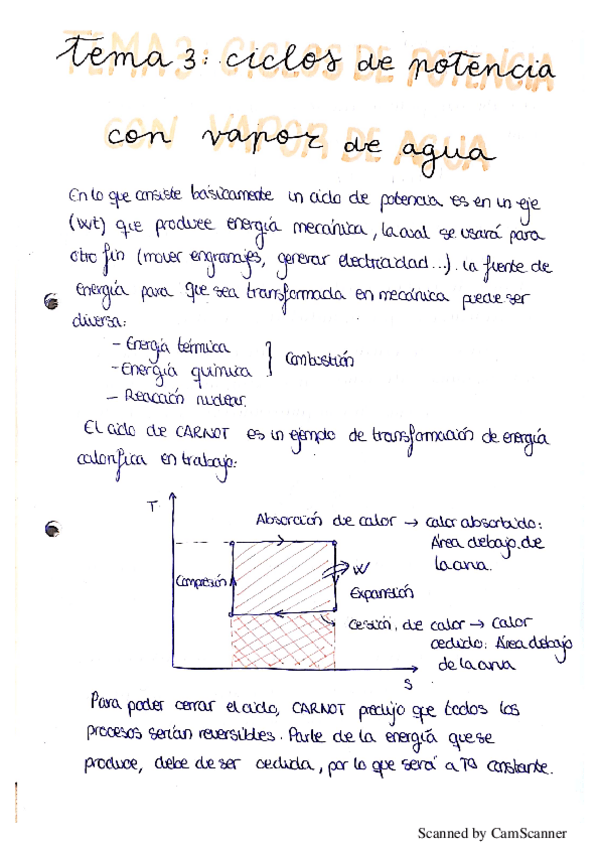 tema 3: ciclos de potencia
con vapor de agua
En lo que consiste básicamente un ciclo de potencia es en un eje
(Wt) que produce energía mecánica, la cual se usará para
otro fin (mover engranajes, generar electricidad...). La fuente de
energía para que sea transformada en mecánica puede ser
diversa:
- Energía térmica
- Energía química } Combustión
- Reacción nuclear.
El ciclo de CARNOT es un ejemplo de transformación de energía
calorífica en trabajo:
T
Absorción de calor → calor absorbido:
Área debajo de
la curva.
Compresión
W
Expansión
Cesión, de calor → calor
cedido: Área debajo
de la curva
S
Para poder cerrar el ciclo, CARNOT predijo que todos los
procesos serían reversibles. Parte de la energía que se
produce, debe de ser cedida, por lo que será a Tª constante.
Scanned by CamScanner